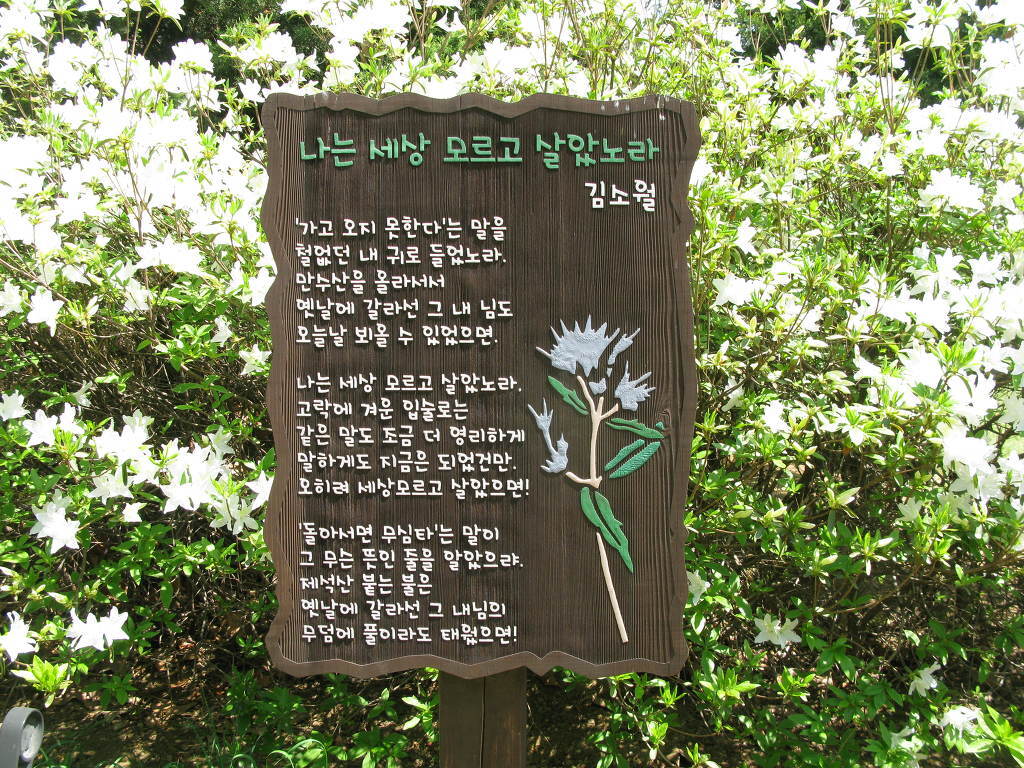 나는 세상 모르고 살았노라
김소월
'가고 오지 못한다'는 말을
철없던 내 귀로 들었노라.
만수산을 올라서서
옛날에 갈라선 그 내 님도
오늘날 뵈올 수 있었으면.
나는 세상 모르고 살았노라.
고락에 겨운 입술로는
같은 말도 조금 더 영리하게
말하게도 지금은 되었건만.
오히려 세상모르고 살았으면!
'돌아서면 무심타'는 말이
그 무슨 뜻인 줄을 알았으랴.
제석산 붙는 불은
옛날에 갈라선 그 내님의
무덤에 풀이라도 태웠으면!